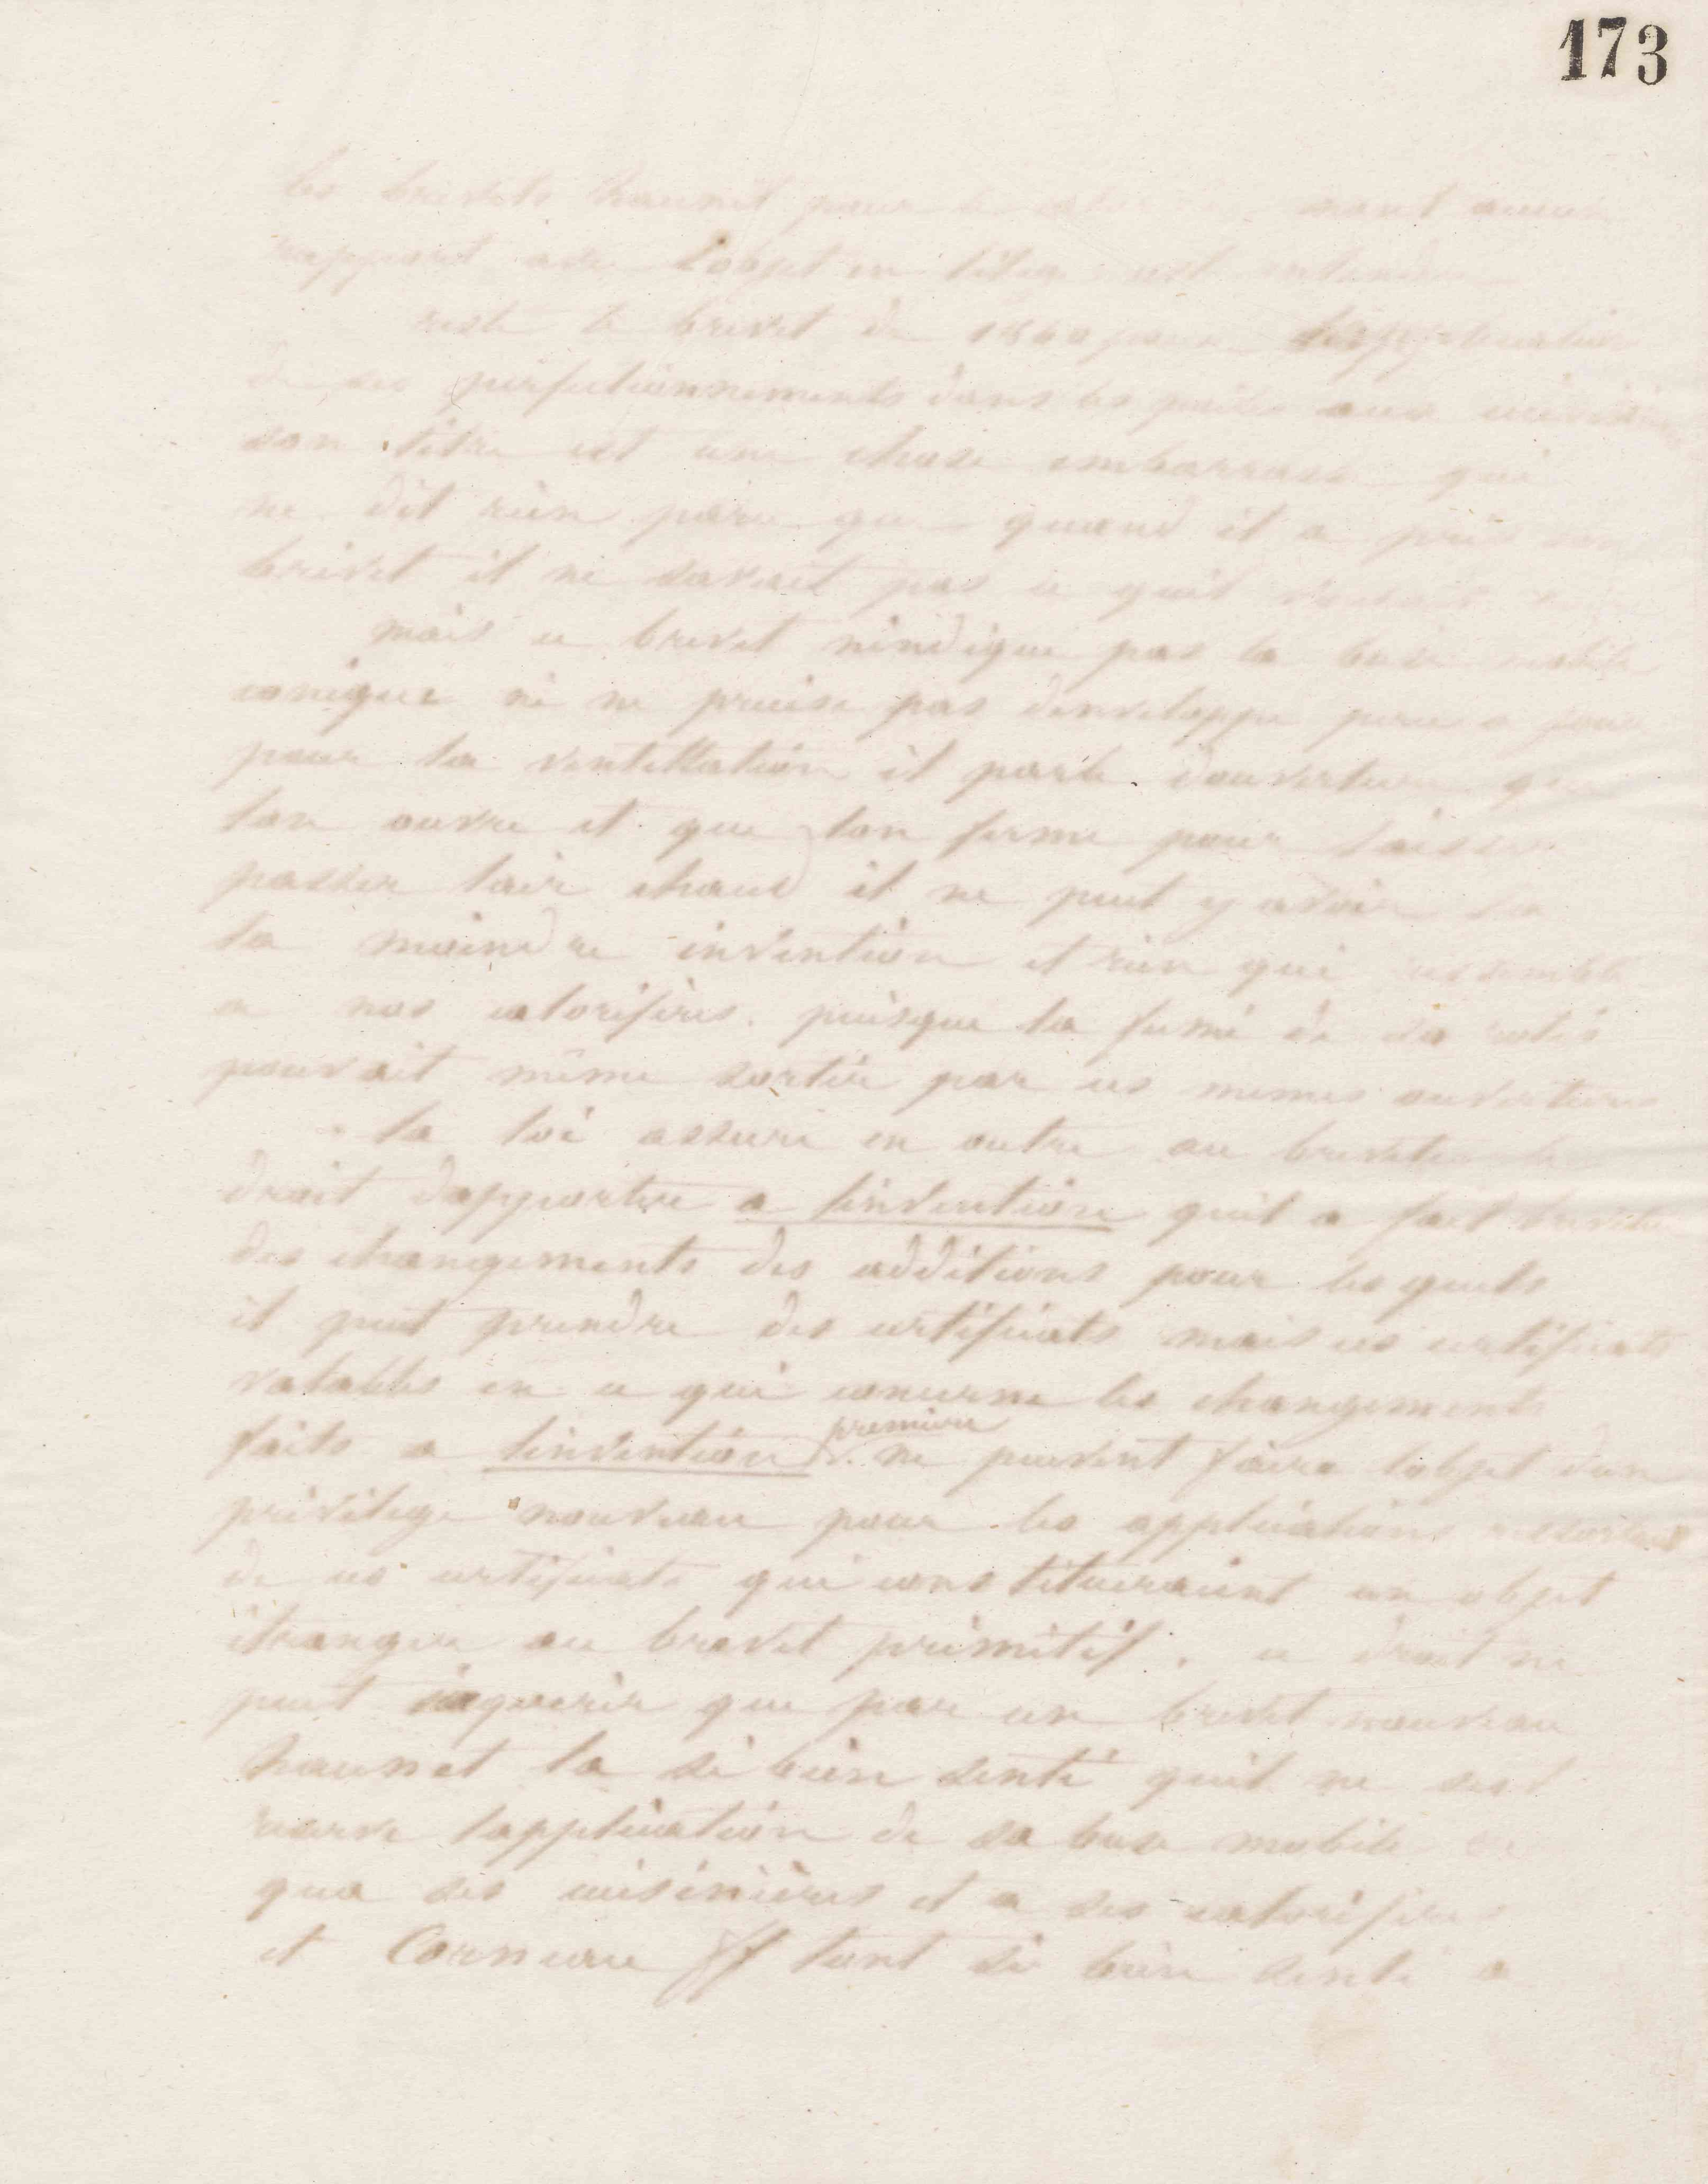 173
les brevets haunet pour le nont aucun
rapport avec lobjet en litige
reste le brevet de 1860 pour
de ses perfectionnements dans les poeles aux
son titre est une chose embarrasse qui
ne dit rien parce que quand il a pris son
brevet il ne savait pas ce quil
mais ce brevet nindique pas la buse mobile
conique ni ne precise pas denveloppe
pour la ventillation il parle douverture que
lon ouvre et que lon ferme pour laisser
passer lair chaud il ne peut y avoir
la moindre invention et rien qui ressemble
a nos calorifères. puisque la fumé de
pouvait même sortir par ces memes ouvertures
la loi assure en outre au breveté le
droit dapporter a linvention quil a fait breveter
des changements des additions pour lesquels
il peut prendre des certificats mais ces certificats
valables en ce qui concerne les changements
faits a linvention premiere ne peuvent faire lobjet dun
privilege nouveau pour les applications
de ces certificats qui constitueraient un objet
étranger au brevet primitif. ce droit ne
peut saquerir que par un brevet nouveau
haunet la si bien senti quil ne sest
reservé lapplication de sa buse mobile
qua ses cuisinières et a ses calorifères
et Corneau ff lont si bien senti a